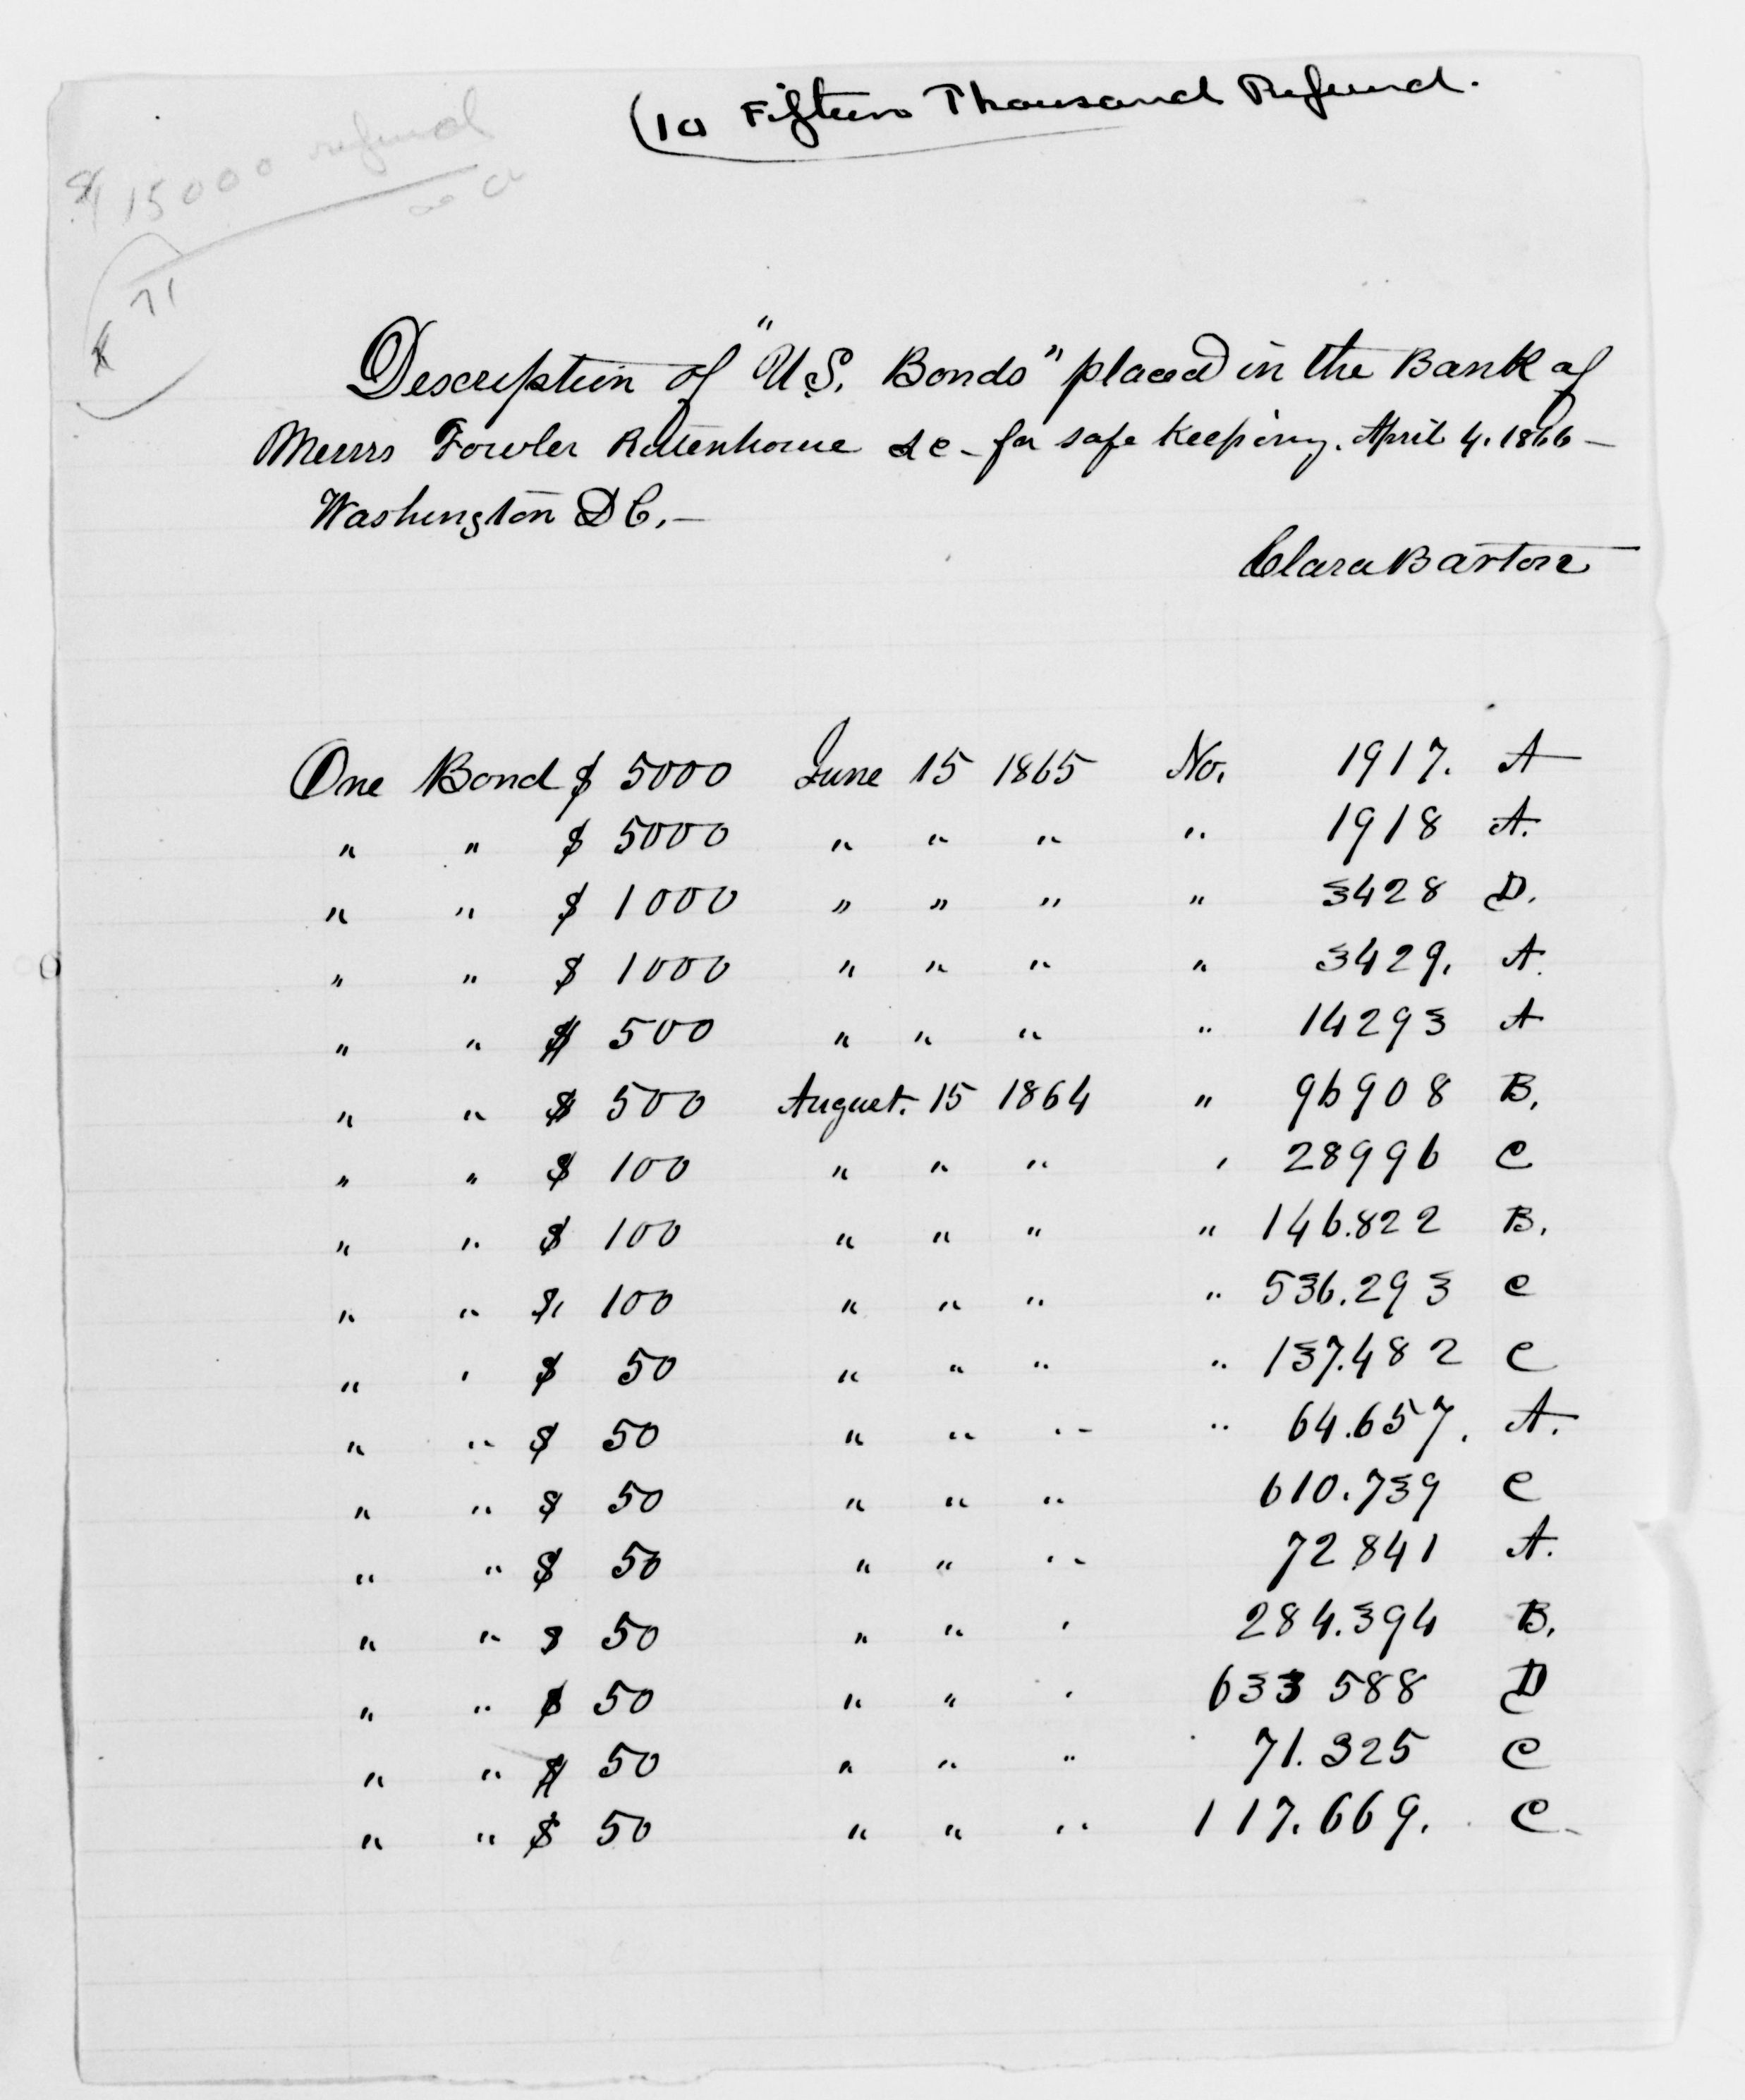 (10 Fifteen Thousand Refund.
$15000 refund
71
Description of "U.S. Bonds" placed in the Bank of
Messrs Fowler Rittenhouse &c - for safe keeping. April 4. 1866 -
Washington DC. -
Clara Barton
One Bond $ 5000 June 15 1865 No. 1917. A
" " $ 5000 " " " " 1918 A.
" " $ 1000 " " " " 3428 D.
" " $ 1000 " " " " 3429. A.
" " $ 500 " " " " 14293 A
" " $ 500 August. 15 1864 " 96908 B.
" " $ 100 " " " " 28996 C
" " $ 100 " " " " 146.822 B.
" " $ 100 " " " " 536.293 C
" " $ 50 " " " " 137.482 C
" " $ 50 " " " " 64.657. A.
" " $ 50 " " " 610.739 C
" " $ 50 " " " 72.841 A.
" " $ 50 " " " 284.394 B.
" " $ 50 " " " 633 588 D
" " $ 50 " " " 71.325 C
" " $ 50 " " " 117.669. C.